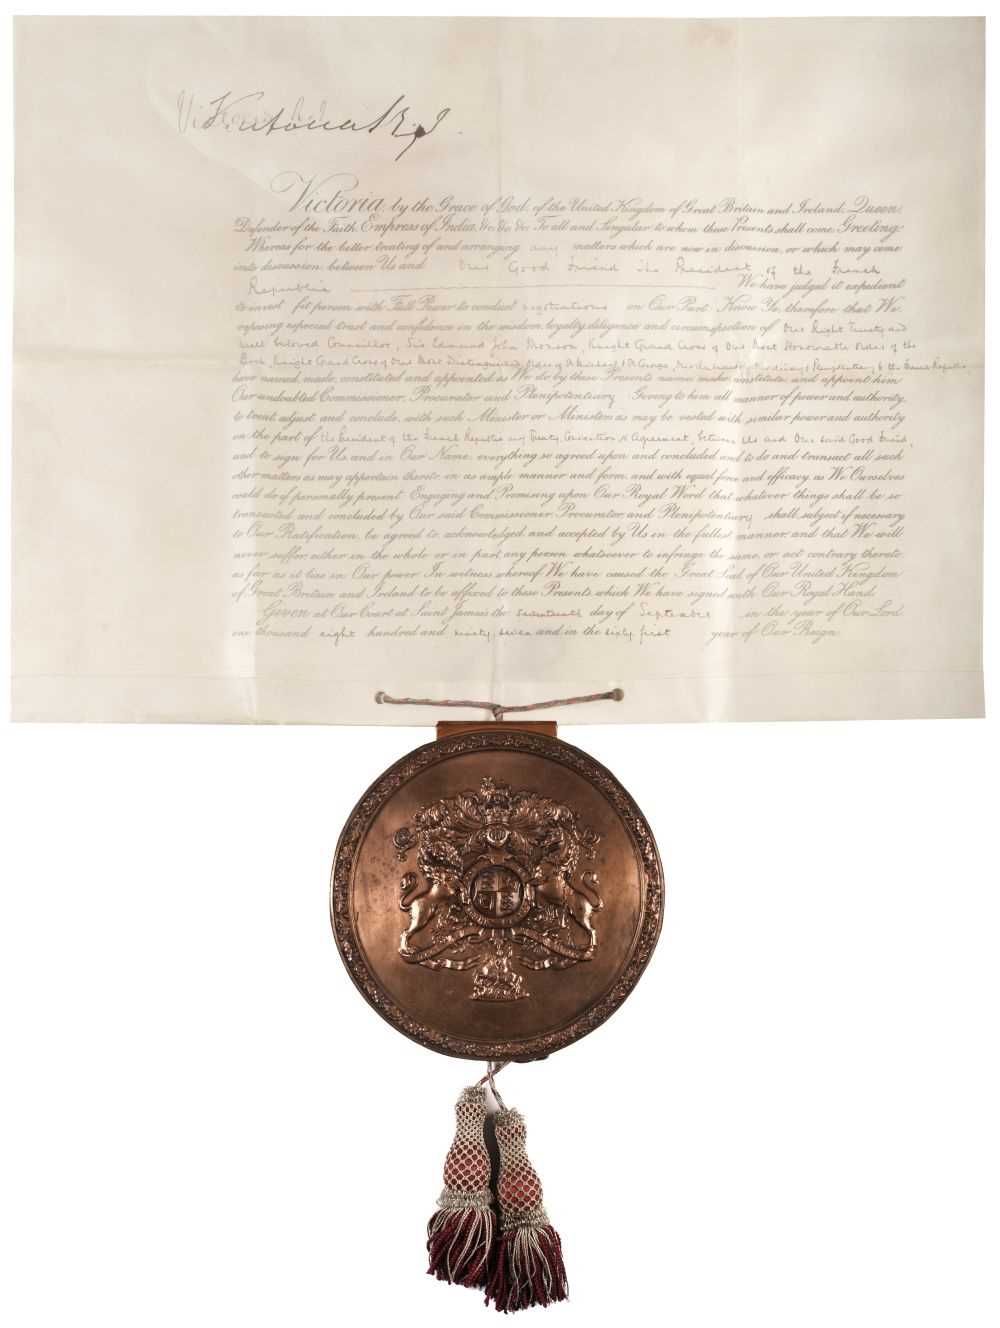 Victoria R.I.
Victoria, by the Grace of God, of the United Kingdom of Great Britain and Ireland, Queen,
Defender of the Faith, Empress of India, &c, &c, &c. To all and Singular to whom these Presents shall come Greeting.
Whereas for the better treating of and arranging any matters which are now in discussion, or which may come
into discussion between Us and Our Good Friend The President of the French
Republic We have judged it expedient
to invest fit person with Full Power to conduct negotiations on Our Part: Know Ye, therefore that We
reposing especial trust and confidence in the wisdom, loyalty, diligence and circumspection of Our Right Trusty and
Well beloved Councillor, Sir Edmund John Monson, Knight Grand Cross of Our Most Honourable Order of the
Bath, Knight Grand Cross of Our Most Distinguished Order of St Michael & St George, Our Ambassador Extraordinary & Plenipotentiary to the French Republic
have named, made, constituted and appointed as We do by these Presents name, make, constitute and appoint him
Our undoubted Commissioner, Procurator and Plenipotentiary Giving to him all manner of power and authority
to treat, adjust and conclude, with such Minister or Ministers as may be vested with similar power and authority
on the part of the President of the French Republic any Treaty, Convention or Agreement, between Us and Our said Good Friend,
and to sign for Us and in Our Name, everything so agreed upon and concluded and to do and transact all such
other matters as may appertain thereto, in as ample manner and form, and with equal force and efficacy, as We Ourselves
could do if personally present. Engaging and Promising upon Our Royal Word that whatever things shall be so
transacted and concluded by Our said Commissioner, Procurator, and Plenipotentiary shall, subject if necessary
to Our Ratification, be agreed to, acknowledged and accepted by Us in the fullest manner, and that We will
never suffer, either in the whole or in part, any person whatsoever to infringe the same, or act contrary thereto,
as far as it lies in Our power. In witness whereof We have caused the Great Seal of Our United Kingdom
of Great Britain and Ireland to be affixed to these Presents, which We have signed with Our Royal Hand.
Given at Our Court at Saint James's the seventeenth day of September in the year of Our Lord
one thousand eight hundred and ninety seven and in the sixty first year of Our Reign